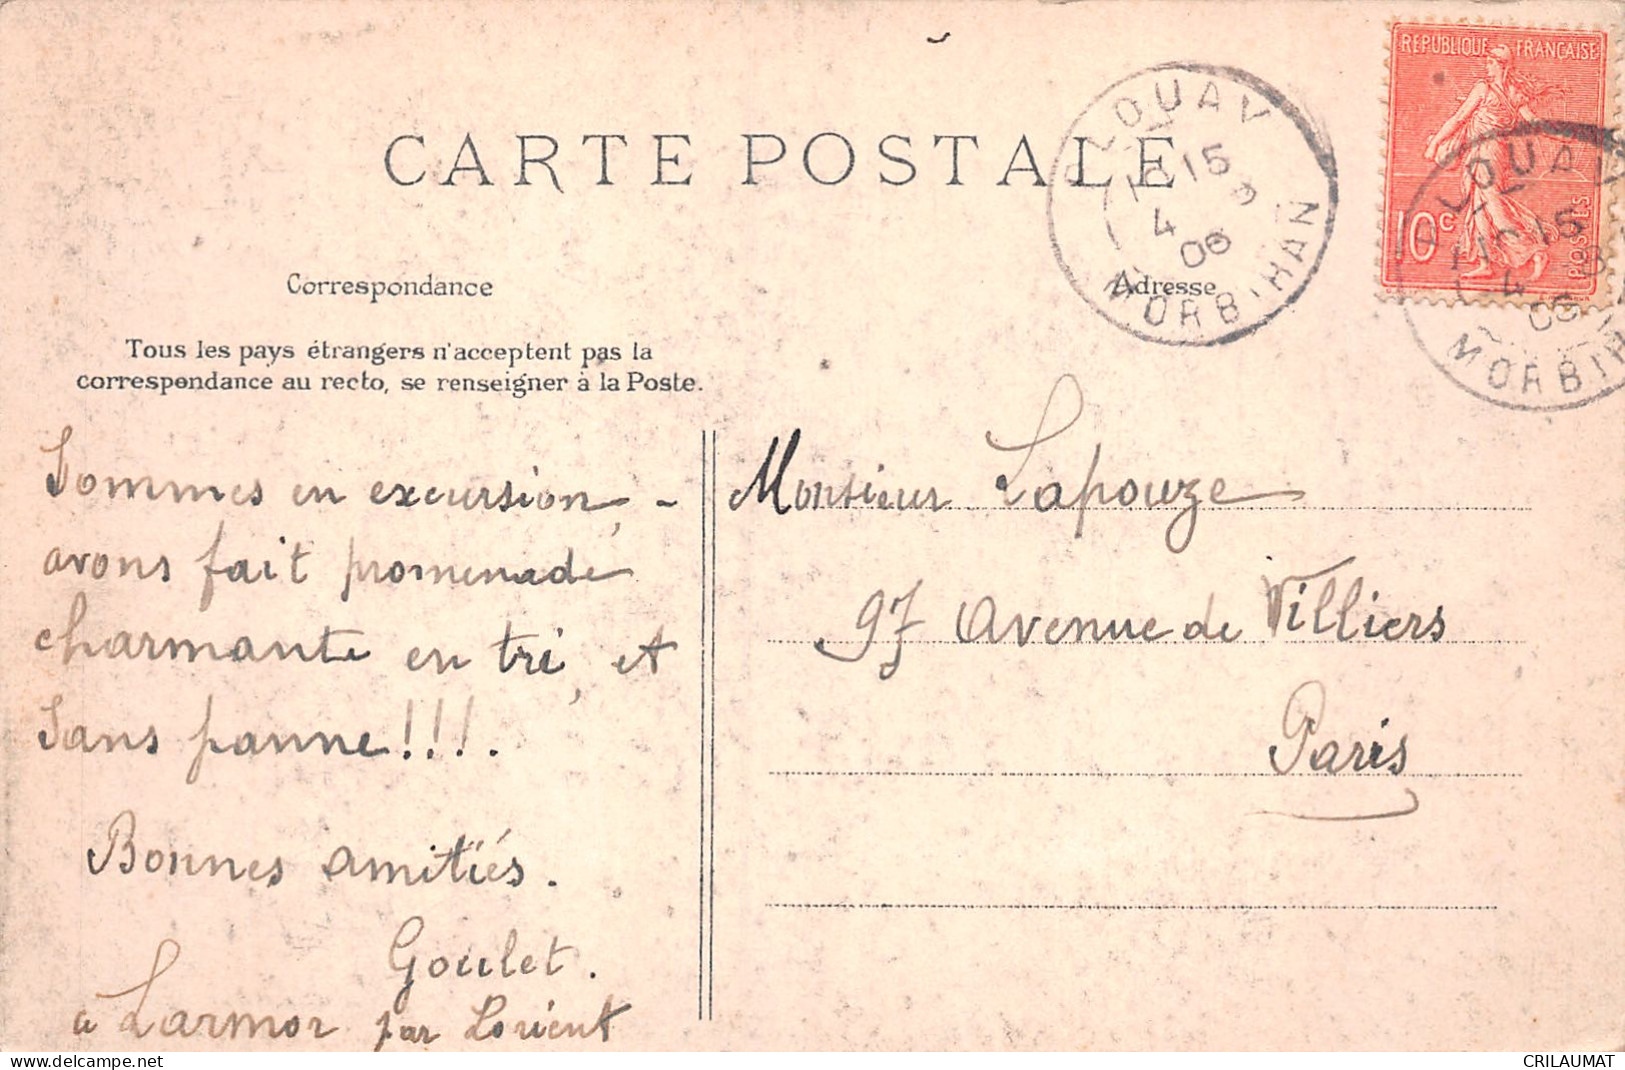 CARTE POSTALE
RÉPUBLIQUE FRANÇAISE
10c
POSTES
PLOUAY
15
4
06
MORBIHAN
PLOUAY
15
4
06
MORBIH
Correspondance
Adresse
Tous les pays étrangers n'acceptent pas la
correspondance au recto, se renseigner à la Poste.
Sommes en excursion, -
avons fait promenade
charmante en tri, et
Sans panne!!!.
Bonnes amitiés.
Goulet.
à Larmor par Lorient
Monsieur Lapouze
97 Avenue de Villiers
Paris
delcampe.net
CRILAUMAT